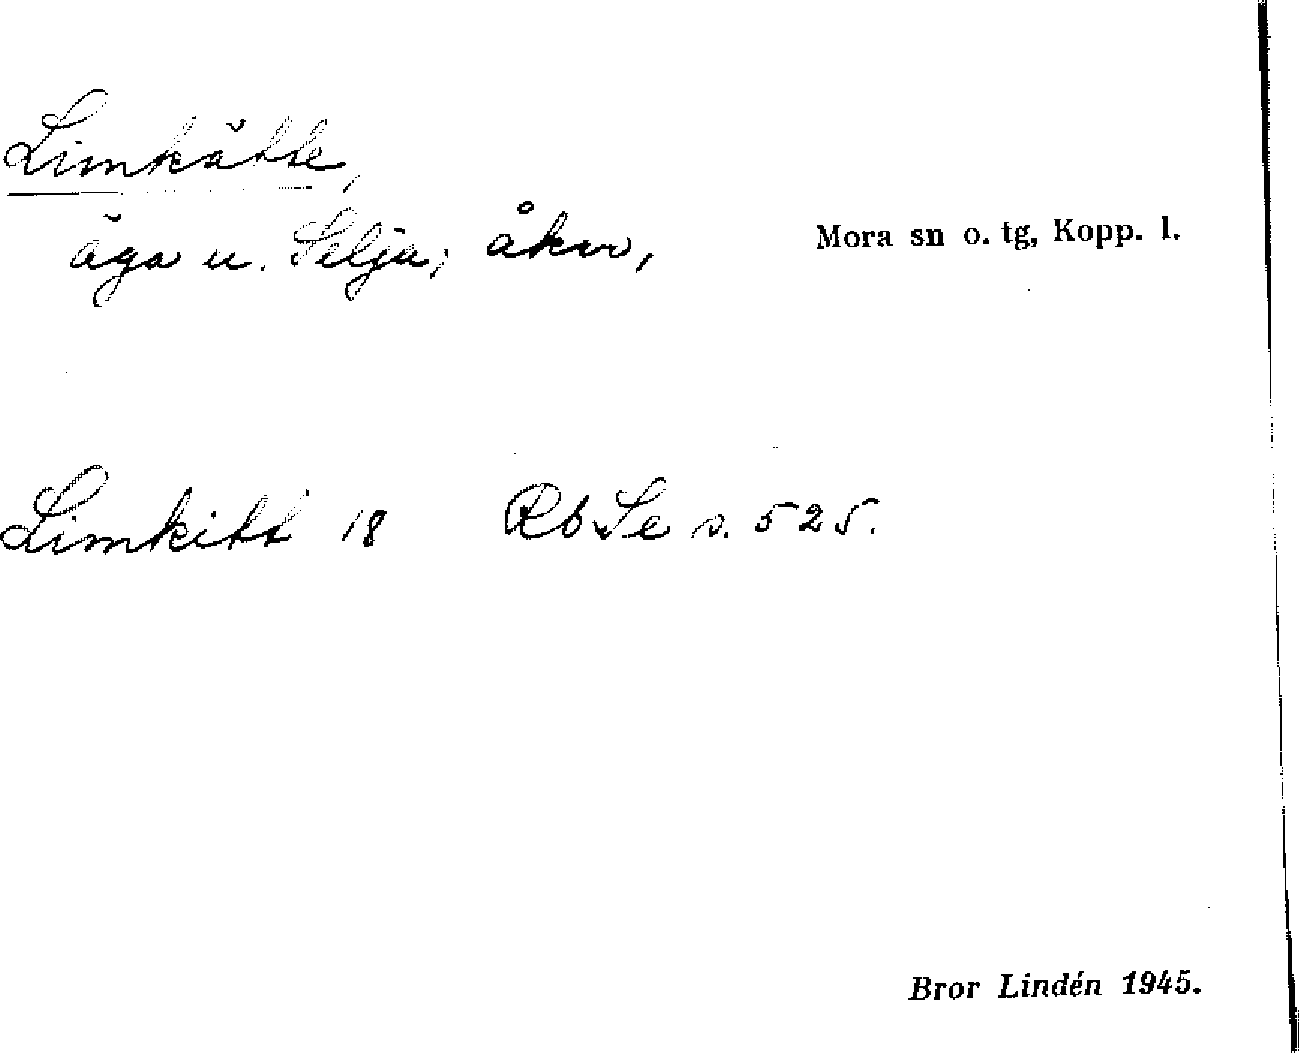 Limkätte,
äga u. Selja; åker,
Mora sn o. tg, Kopp. l.
Limkitt 18 Rb Se s. 525.
Bror Lindén 1945.